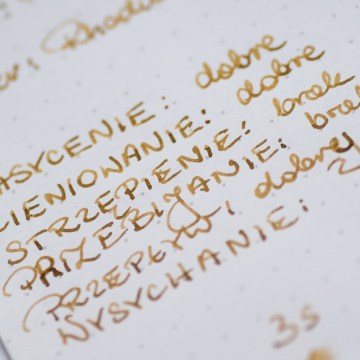 ASYCENIE: dobre
CIENIOWANIE: dobre
STRZĘPIENIE: brak
PRZEBIJANIE: brak
PRZEPŁYW: dobry
WYSYCHANIE: 3s